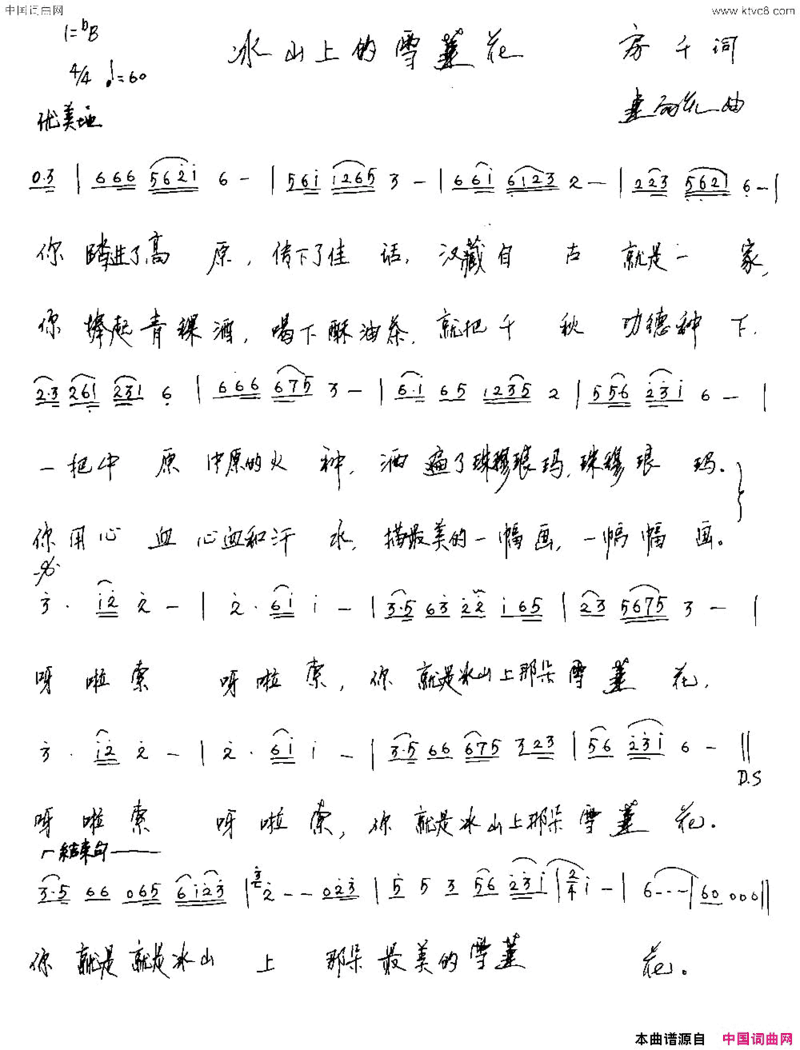 中国词曲网 www.ktvc8.com
1=ᵇB
冰山上的雪莲花 房千词
4/4 ♩=60
优美地 曲
0·3 | 666 562i 6 - | 56i i265 3 - | 66i 6123 2 - | 223 5621 6 - |
你踏进了高原，传下了佳话，汉藏自古就是一家，
你捧起青稞酒，喝下酥油茶，就把千秋功德种下.
2·3 261 231 6 | 666 675 3 - | 6·1 65 1235 2 | 556 231 6 - |
一把中原中原的火种，洒遍了珠穆琅玛，珠穆琅玛。
你用心血心血和汗水，描最美的一幅画，一幅幅画。
3· i2 2 - | 2· 6i i - | 3·5 63 22 i65 | 23 5675 3 - |
呀啦索 呀啦索，你就是冰山上那朵雪莲花，
3· i2 2 - | 2· 6i i - | 3·5 66 675 323 | 56 23i 6 - ||
D.S
呀啦索 呀啦索，你就是冰山上那朵雪莲花.
结束句
3·5 66 065 6i23 | 2 - - 023 | 5 5 3 56 23i | 2/4 i - | 6 - - - | 60 000 ||
你就是就是冰山上 那朵最美的雪莲花。
本曲谱源自 中国词曲网